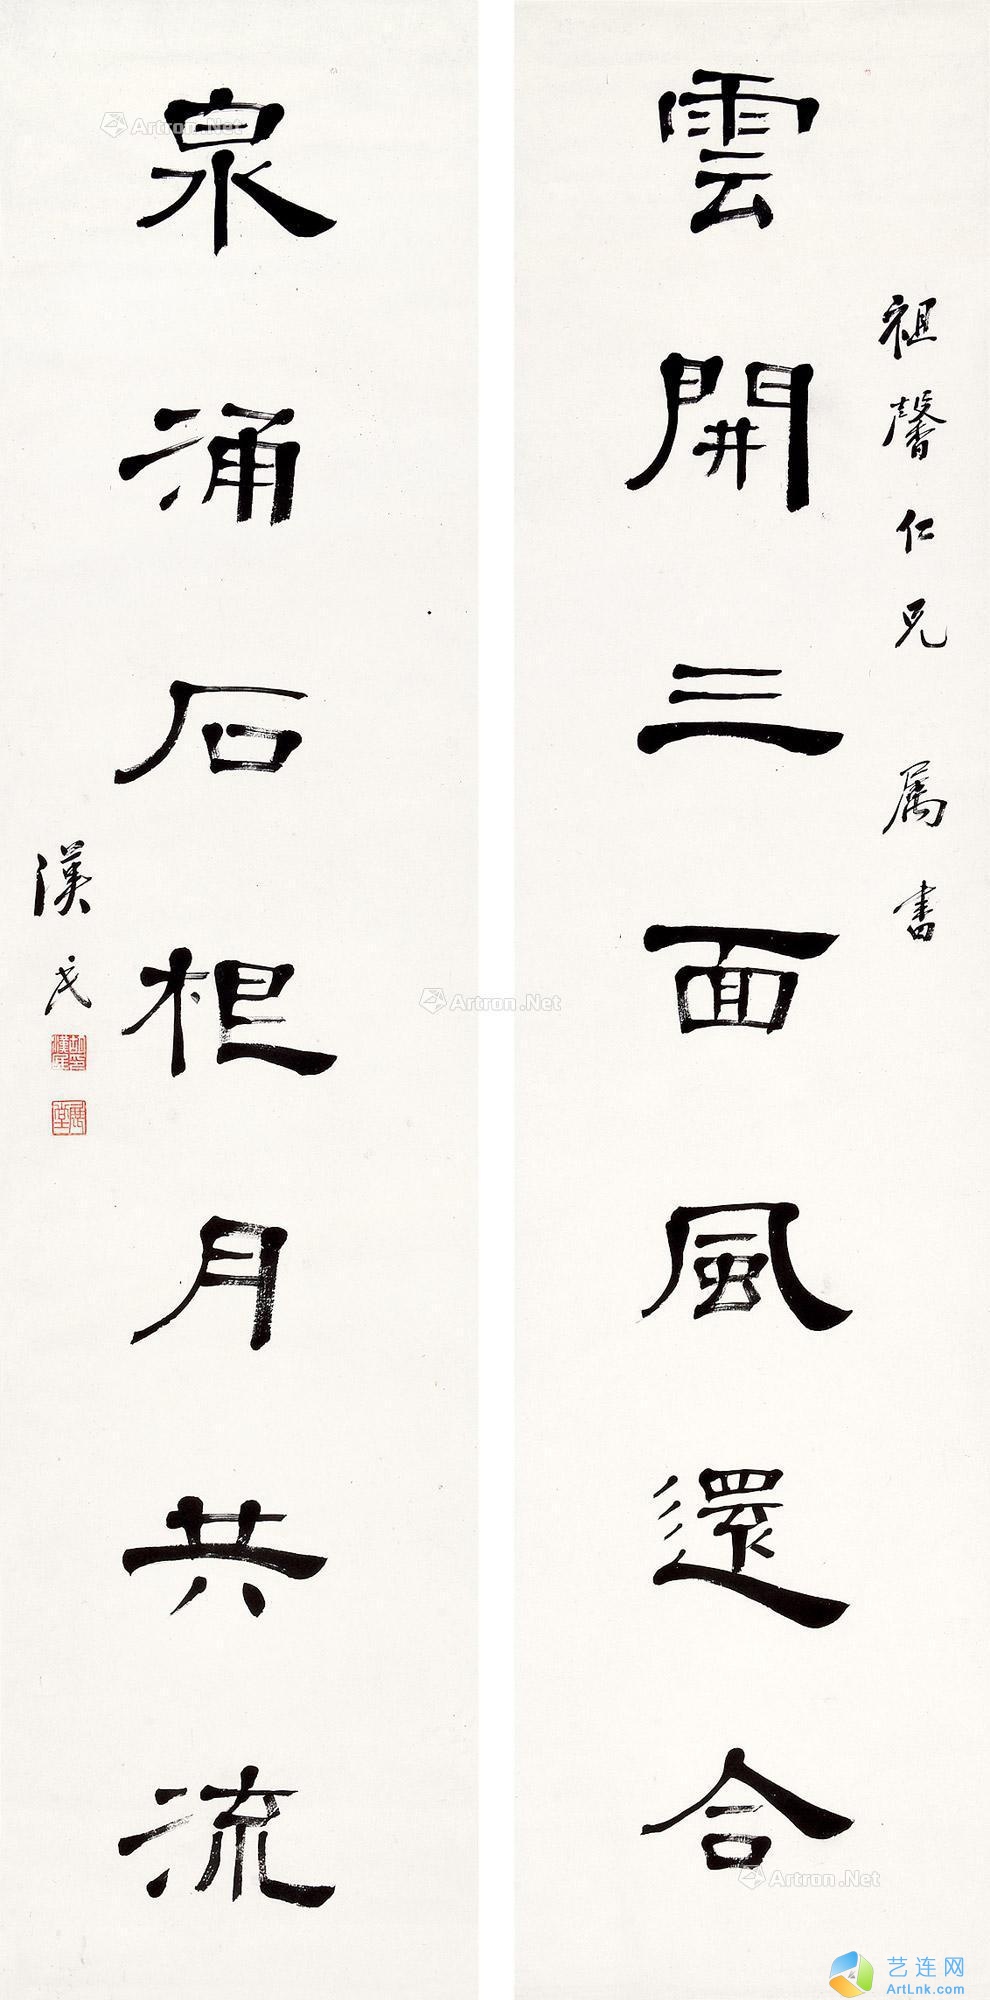 祖馨仁兄 属書
雲開三面風還合
泉涌石根月共流
漢民
胡漢民印
展堂
Artron.Net
Artron.Net
Artron.Net
艺连网
ArtLnk.com